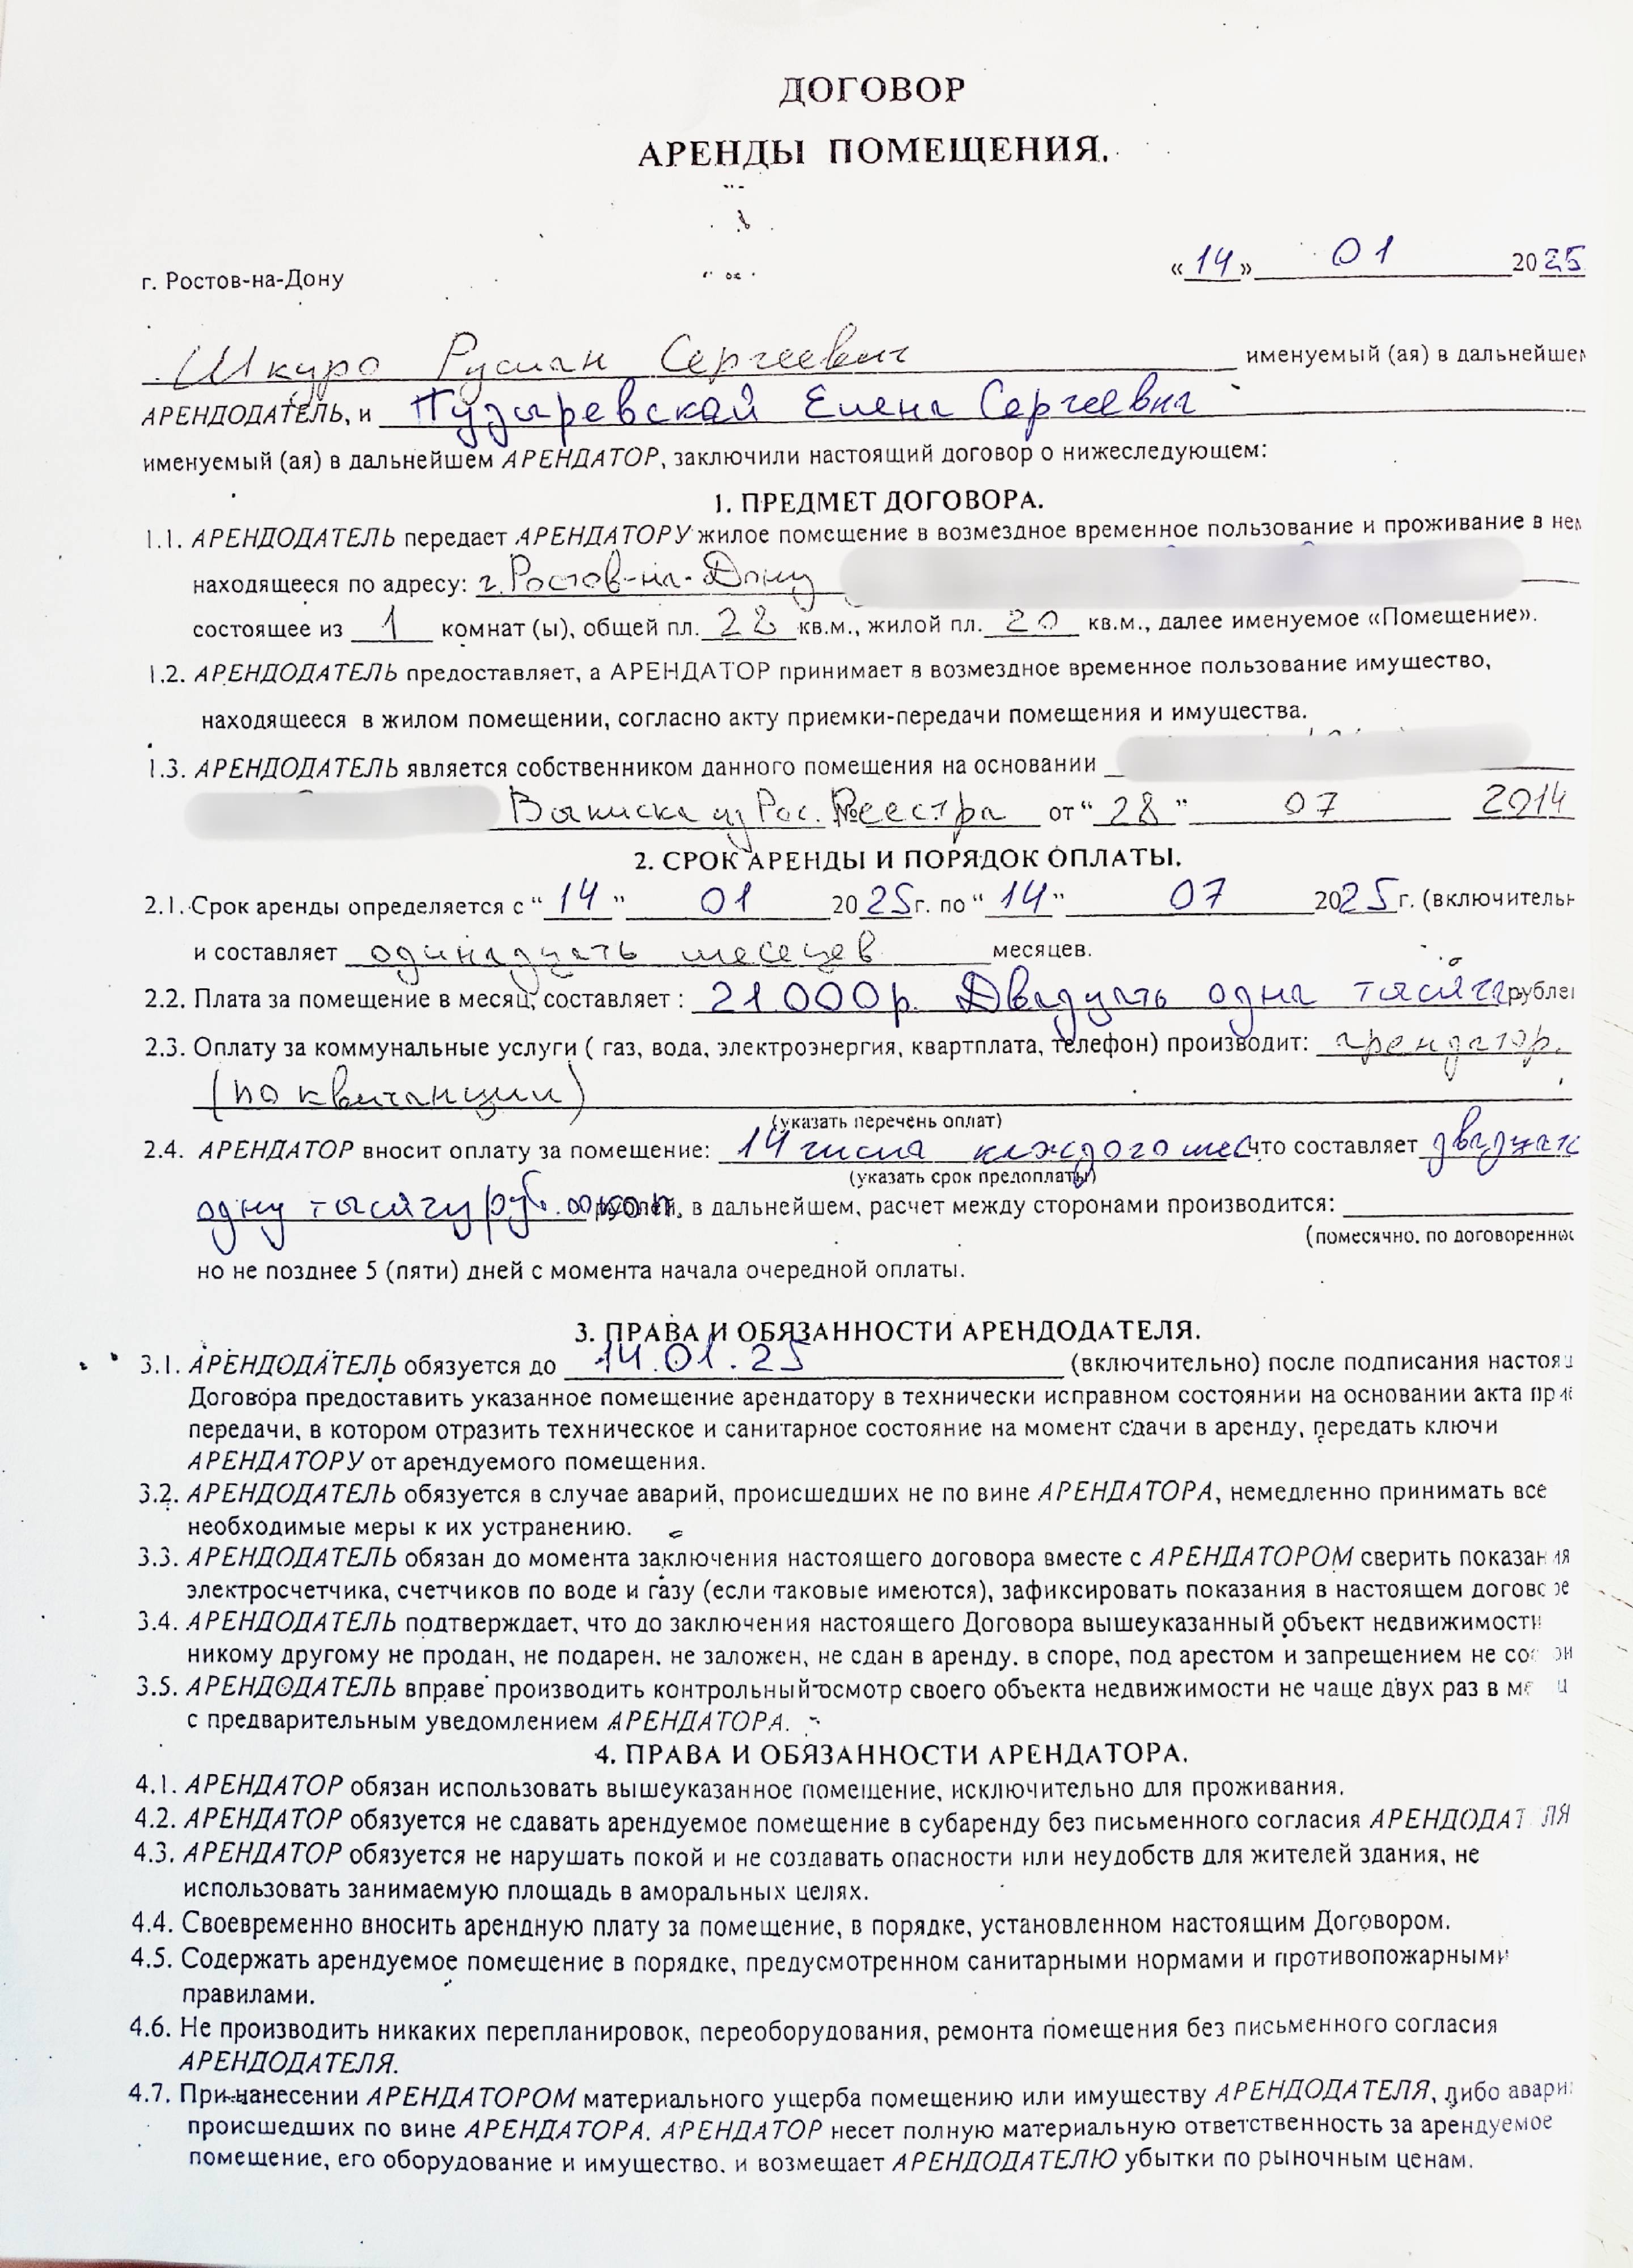 ДОГОВОР
АРЕНДЫ ПОМЕЩЕНИЯ.
г. Ростов-на-Дону «14» 01 2025
Шкуро Руслан Сергеевич именуемый (ая) в дальнейшем
АРЕНДОДАТЕЛЬ, и Пузыревской Елена Сергеевна
именуемый (ая) в дальнейшем АРЕНДАТОР, заключили настоящий договор о нижеследующем:
1. ПРЕДМЕТ ДОГОВОРА.
1.1. АРЕНДОДАТЕЛЬ передает АРЕНДАТОРУ жилое помещение в возмездное временное пользование и проживание в нем
находящееся по адресу: г. Ростов-на-Дону
состоящее из 1 комнат (ы), общей пл. 28 кв.м., жилой пл. 20 кв.м., далее именуемое «Помещение».
1.2. АРЕНДОДАТЕЛЬ предоставляет, а АРЕНДАТОР принимает в возмездное временное пользование имущество,
находящееся в жилом помещении, согласно акту приемки-передачи помещения и имущества.
1.3. АРЕНДОДАТЕЛЬ является собственником данного помещения на основании
Выписка из Рос. Реестра от “ 28 ” 07 2014
2. СРОК АРЕНДЫ И ПОРЯДОК ОПЛАТЫ.
2.1. Срок аренды определяется с “ 14 ” 01 2025г. по “ 14 ” 07 2025г. (включительн
и составляет одинадцать месецев месяцев.
2.2. Плата за помещение в месяц, составляет : 21.000р. Двадцать одна тысяча рублей
2.3. Оплату за коммунальные услуги ( газ, вода, электроэнергия, квартплата, телефон) производит: арендатор.
(по квитанции)
(указать перечень оплат)
2.4. АРЕНДАТОР вносит оплату за помещение: 14 числа каждого мес что составляет двадцать
(указать срок предоплаты)
одну тысячу руб. 00 коп. рублей, в дальнейшем, расчет между сторонами производится:
(помесячно, по договоренно
но не позднее 5 (пяти) дней с момента начала очередной оплаты.
3. ПРАВА И ОБЯЗАННОСТИ АРЕНДОДАТЕЛЯ.
3.1. АРЕНДОДАТЕЛЬ обязуется до 14.01.25 (включительно) после подписания настоя
Договора предоставить указанное помещение арендатору в технически исправном состоянии на основании акта при
передачи, в котором отразить техническое и санитарное состояние на момент сдачи в аренду, передать ключи
АРЕНДАТОРУ от арендуемого помещения.
3.2. АРЕНДОДАТЕЛЬ обязуется в случае аварий, происшедших не по вине АРЕНДАТОРА, немедленно принимать все
необходимые меры к их устранению.
3.3. АРЕНДОДАТЕЛЬ обязан до момента заключения настоящего договора вместе с АРЕНДАТОРОМ сверить показания
электросчетчика, счетчиков по воде и газу (если таковые имеются), зафиксировать показания в настоящем договоре
3.4. АРЕНДОДАТЕЛЬ подтверждает, что до заключения настоящего Договора вышеуказанный объект недвижимости
никому другому не продан, не подарен, не заложен, не сдан в аренду, в споре, под арестом и запрещением не
3.5. АРЕНДОДАТЕЛЬ вправе производить контрольный осмотр своего объекта недвижимости не чаще двух раз в
с предварительным уведомлением АРЕНДАТОРА.
4. ПРАВА И ОБЯЗАННОСТИ АРЕНДАТОРА.
4.1. АРЕНДАТОР обязан использовать вышеуказанное помещение, исключительно для проживания.
4.2. АРЕНДАТОР обязуется не сдавать арендуемое помещение в субаренду без письменного согласия АРЕНДОДАТЕЛЯ
4.3. АРЕНДАТОР обязуется не нарушать покой и не создавать опасности или неудобств для жителей здания, не
использовать занимаемую площадь в аморальных целях.
4.4. Своевременно вносить арендную плату за помещение, в порядке, установленном настоящим Договором.
4.5. Содержать арендуемое помещение в порядке, предусмотренном санитарными нормами и противопожарными
правилами.
4.6. Не производить никаких перепланировок, переоборудования, ремонта помещения без письменного согласия
АРЕНДОДАТЕЛЯ.
4.7. При нанесении АРЕНДАТОРОМ материального ущерба помещению или имуществу АРЕНДОДАТЕЛЯ, либо авари
происшедших по вине АРЕНДАТОРА. АРЕНДАТОР несет полную материальную ответственность за арендуемое
помещение, его оборудование и имущество, и возмещает АРЕНДОДАТЕЛЮ убытки по рыночным ценам.